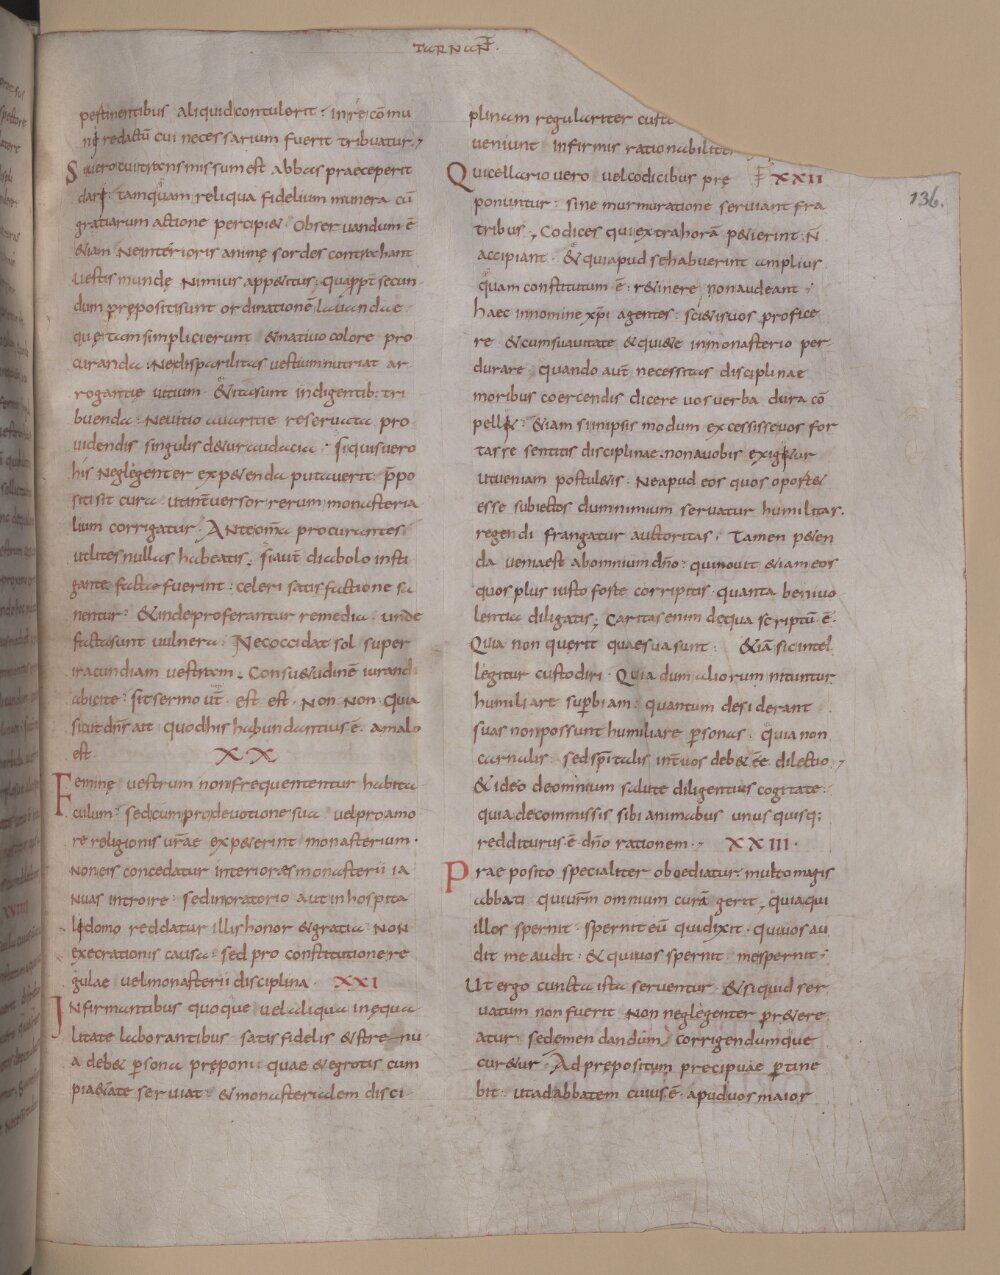 TARNAÑ.
pertinentibus aliquid contulerit: in re cōmu
ni redactū cui necessarium fuerit tribuatur;
Si vero cui transmissum est abbas praeceperit
dari: tamquam reliqua fidelium munera cū
gratiarum actione percipi&. Observandum ē
&iam Ne interioris animę sordes contrahant
vestis mundę Nimius app&itus; quapp̄t secun
dum prępositi sunt ordinationē lavandae:
quę tam simplici erunt & nativo colore pro
curanda: Ne disparilitas vestium nutriat ar
rogantię vitium. & ita sunt indigentib: tri
buenda: Ne vitio avaritię reservata pro
videndis singulis d&ur audacia: si quis vero
his Neglegenter expetenda putaverit: p̄po
siti sit cura ut intēversor rerum monasteria
lium corrigatur. Ante om̄a procurantes
ut lites nullas habeatis; si aut̄ diabolo insti
gante factae fuerint: celeri satisfactione sa
nentur: & inde proferantur remedia unde
facta sunt vulnera. Nec occidat sol super
iracundiam vestram; Consu&udinē iurandi
abicite: sit sermo vr̄ est est. Non Non. Quia
sicut dn̄s ait quod his habundantius ē. a malo
est. XX
Feminę vestrum non frequententur habita
culum: sed cum pro devotione sua vel pro amo
re religionis vr̄ae expetierint monasterium.
Non eis concedatur interiores monasterii ia
nuas introire: sed in oratorio aut in hospita
li domo reddatur illis honor & gratia. Non
execrationis causa: sed pro constitutione re
gulae vel monasterii disciplina. XXI
Infirmantibus quoque vel aliqua inequa
litate laborantibus satis fidelis & stre nu
a deb& p̄sona preponi quae aegrotis cum
pi&ate serviat: & monasterialem disci
plinam regulariter custo
veniunt infirmis rationabilit
Qui cellario vero vel codicibus prę XXII
ponuntur: sine murmuratione serviant fra
tribus, Codices qui extra horā p&ierint: n̄
accipiant. & qui apud se habuerint amplius
quam constitutum ē: r&inere non audeant;
Haec in nomine xp̄i agentes: sci&is vos profice
re & cum suavitate & qui&e in monasterio per
durare. Quando aut̄ necessitas disciplinae
moribus coercendis dicere vos verba dura cō
pellit: &iam si in ipsis modum excessisse vos for
tasse sentitis disciplinae. non a vobis exigitur
ut veniam postul&is. Ne apud eos quos oport&
esse subiectos dum nimium servatur humilitas.
regendi frangatur auctoritas; Tamen p&en
da venia est ab omnium dn̄o: qui novit &iam eos
quos plus iusto forte corripitis quanta benivo
lentia diligatis; Caritas enim de qua scriptū ē.
Quia non querit quae sua sunt: &iā sic intel
legitur custodiri. Quia dum aliorum nituntur
humiliare sup̄biam: quantum desiderant
suas non possunt humiliare p̄sonas. Quia non
carnalis sed sp̄italis int̄ vos deb& eē dilectio;
& ideo de omnium salute diligentius cogitate:
quia de commissis sibi animabus unus quisq;
redditurus ē dn̄o rationem. XXIII.
Praeposito specialiter obo&diatur: multo magis
abbati qui vr̄m omnium curā gerit, quia qui
illos spernit: spernit eū qui dixit. Qui vos au
dit me audit: & qui vos spernit me spernit;
Ut ergo cuncta ista serventur. & si quid ser
vatum non fuerit Non neglegenter pr&ere
atur: sed emendandum corrigendumque
cur&ur. Ad prepositum precipuae p̄tine
bit: ut ad abbatem cuius ē apud vos maior
136.